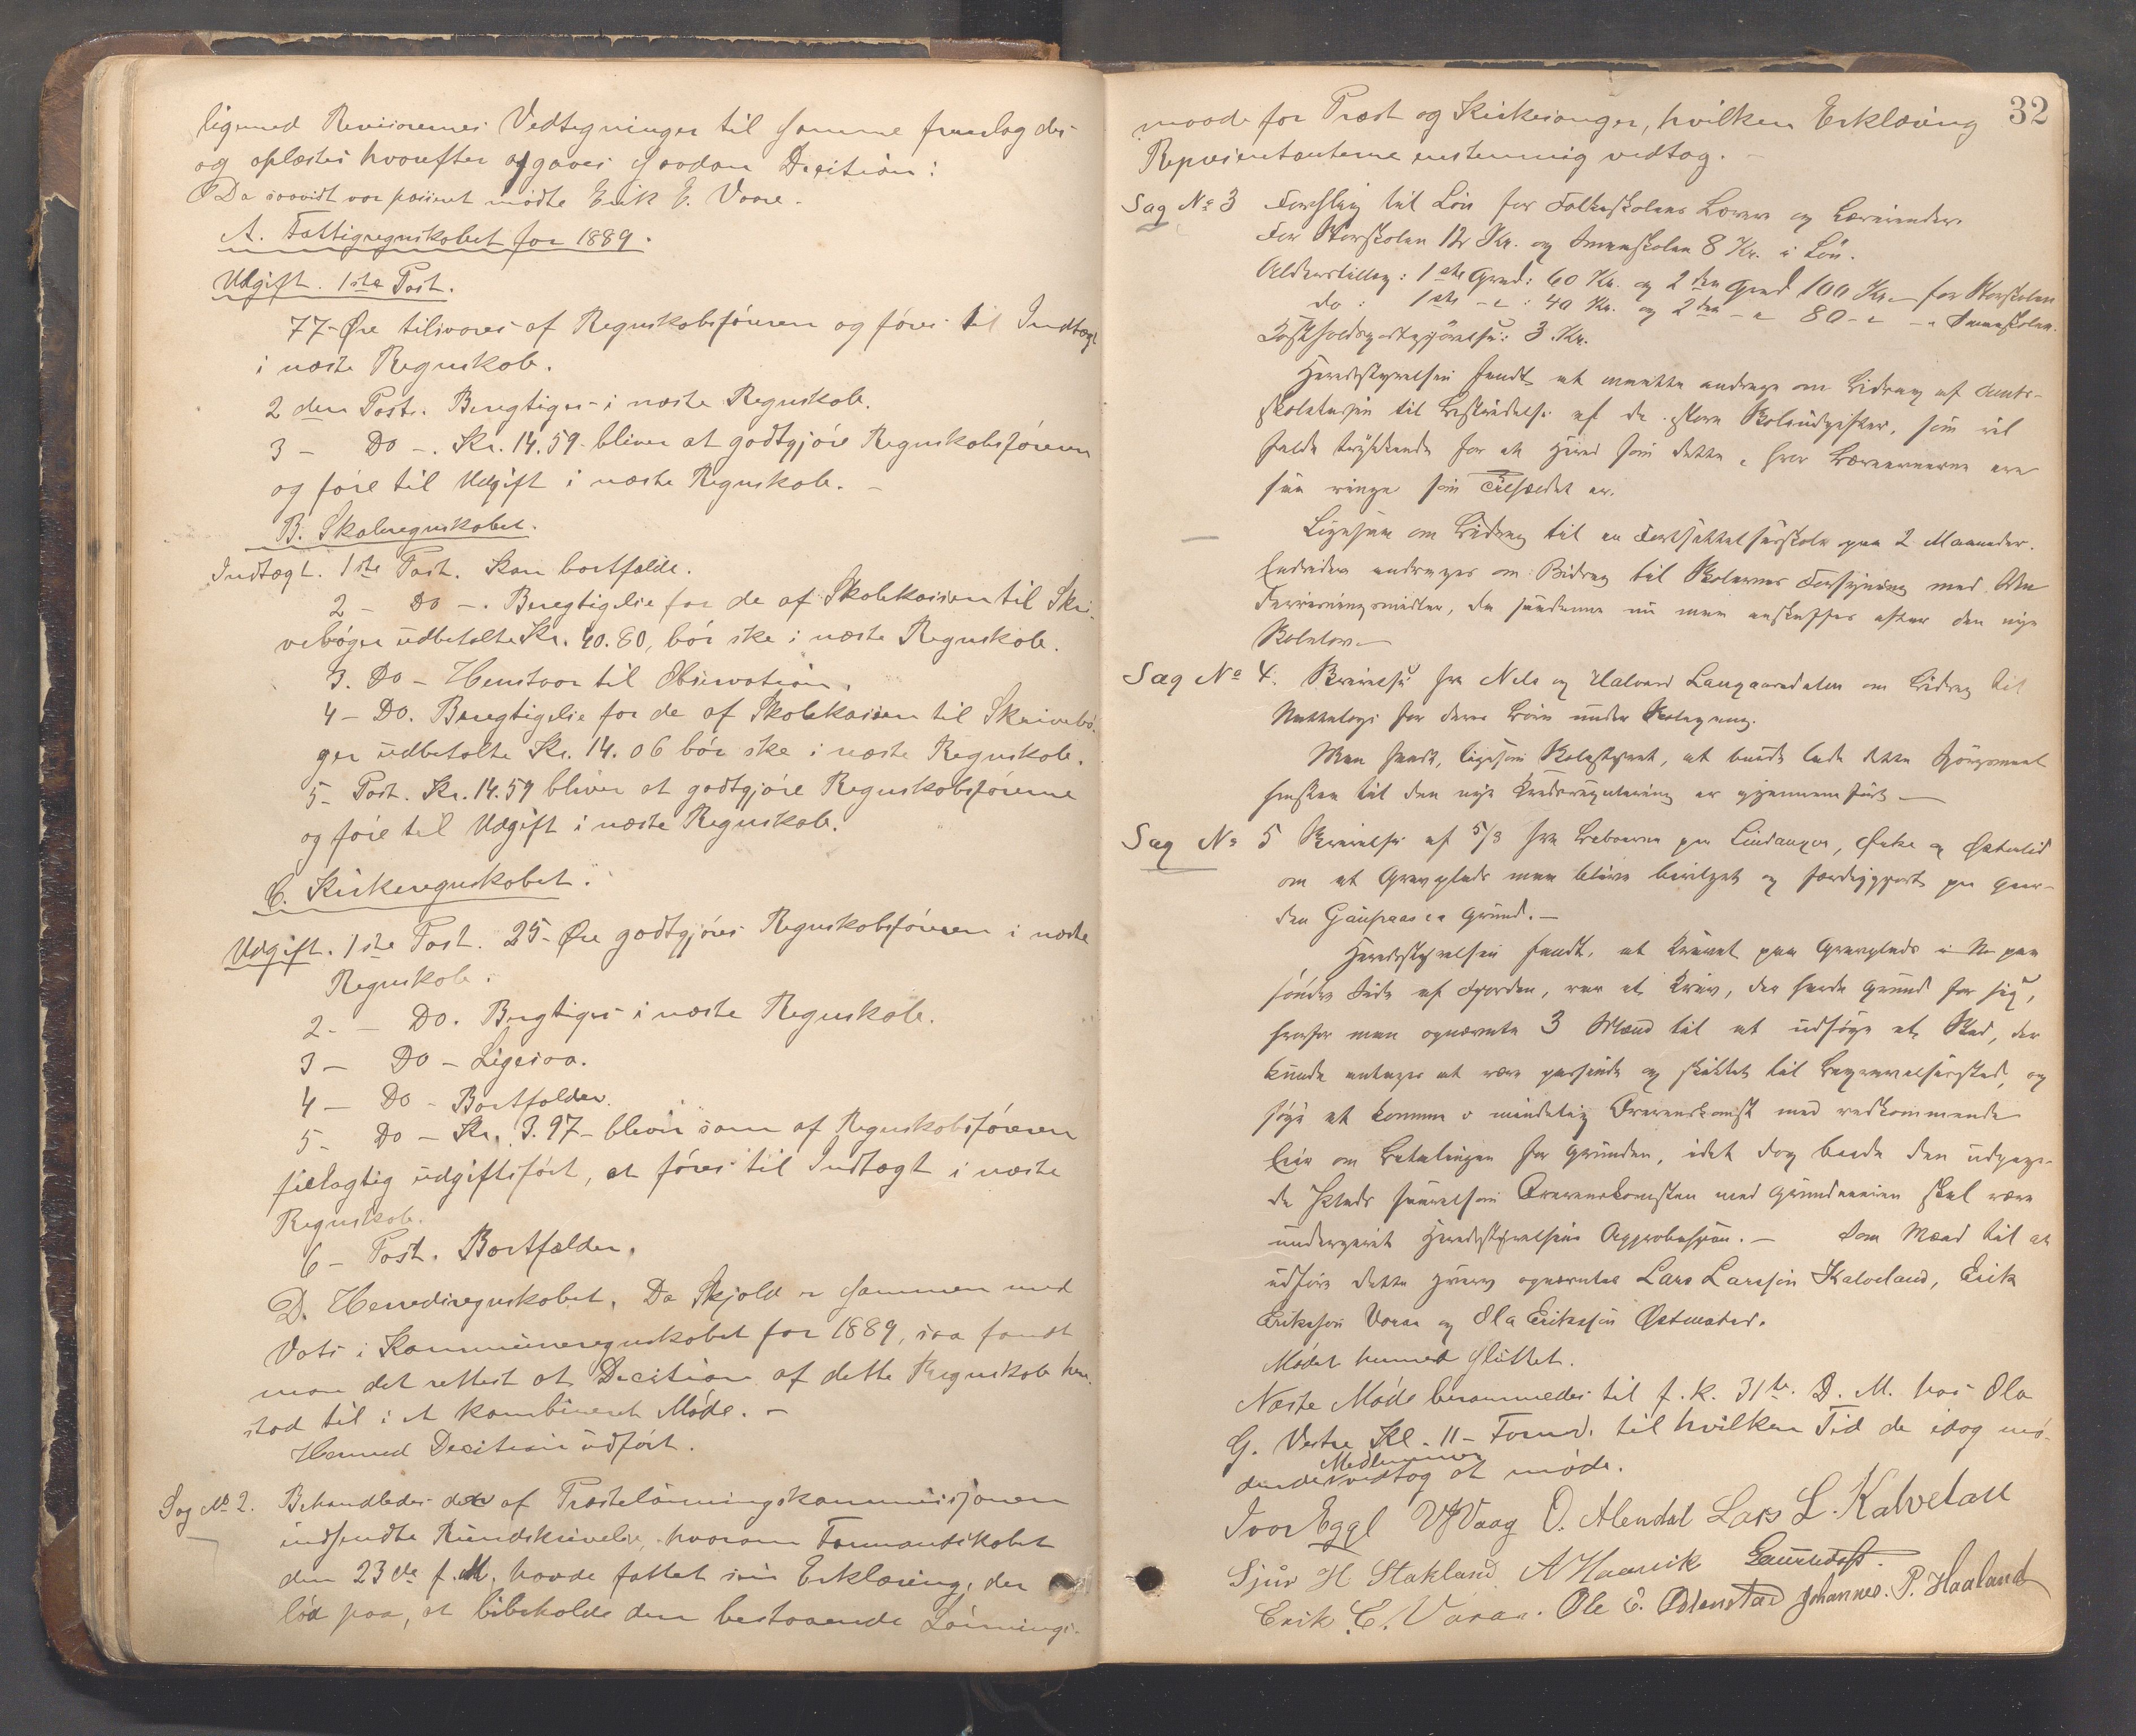 ligemed Revisorernes Vedtegninger til samme fremlagdes
og oplæstes hvorefter afgaves saadan Decition:
Da saavidt var passeret mødte Erik E. Vaare.
A. Fattigregnskabet for 1889.
Udgift. 1ste Post.
77 Øre tilsvares af Regnskabsføreren og føres til Indtægt
i næste Regnskab.
2 den Post. Beregtiges i næste Regnskab.
3 – Do –. Kr. 14.59 bliver at godtgjøre Regnskabsføreren
og føre til Udgift i næste Regnskab. –
B. Skoleregnskabet.
Indtægt. 1ste Post. Kan bortfalde.
2 – Do –. Beregtigelse for de af Skolekassen til Skri-
vebøger udbetalte Kr. 40.80, bør ske i næste Regnskab.
3. Do – Henstaar til Observation.
4 – Do. Beregtigelse for de af Skolekassen til Skrivebø-
ger udbetalte Kr. 14.06 bør ske i næste Regnskab.
5 – Post. Kr. 14.59 bliver at godtgjøre Regnskabsførerne
og føre til Udgift i næste Regnskab.
C. Kirkeregnskabet.
Udgift. 1ste Post. 25 Øre godtgjøres Regnskabsføreren i næste
Regnskab.
2 – Do. Bregtiges i næste Regnskab.
3 – Do – Ligesaa.
4 – Do – Bortfalder.
5 – Do – Kr. 3.97 – blever som af Regnskabsføreren
feilagtig udgiftsført, at føres til Indtægt i næste
Regnskab.
6 – Post. Bortfalder.
D. Herredsregnskabet. Da Skjold er sammen med
Vats i Kommuneregnskabet for 1889, saa fandt
man det rettest at Decition af dette Regnskab hen-
stod til i et kombineret Møde. –
Hermed Decition udført.
Sag No 2. Behandledes den af Præstelønningskommissjonen
indsendte Rundskrivelse, hvorom Formandskabet
den 23de f. M. havde fattet sin Erklæring, der
lød paa, at bibeholde den bestaaende Lønnings-
32
maade for Præst og Kirkesanger, hvilken Erklæring
Repræsentanterne enstemmig vedtog. –
Sag No 3 Forslag til Løn for Folkeskolens Lærere og Lærerinder.
For Storskolen 12 Kr. og Smaaskolen 8 Kr. i Løn.
Alderstillæg: 1ste Grad: 60 Kr. og 2den Grad 100 Kr. – for Storskolen
do : 1ste – " : 40 Kr. og 2den – " 80 – " – " Smaaskolen.
Kostholdsgodtgjørelse: 3 Kr.
Heredsstyrelsen fandt at maatte andrage om Bidrag af Amts-
skolekassen til Bestridelse af de store Skoleudgifter, som vil
falde trykkende for et Hered som dette, hvor
saa ringe som Tilfældet er.
Ligesaa om Bidrag til en Fortsættelsesskole paa 2 Maaneder.
Endvidere andrages om Bidrag til Skolernes Forsyning med
Undervisningsmidler, da saadanne nu maa anskaffes efter den nye
Skolelov. –
Sag No 4. Skrivelse fra Nels og Halvard Langaardalen om Bidrag til
Natteloge for deres Børn under Skolegang.
Man fandt, ligesom Skolestyret, at burde lade dette Spørgsmaal
henstaa til den nye Kredsregulering er gjennemført –
Sag No 5 Skrivelse af 5/8 fra Beboerne paa Lindanger, og
om at Gravplads maa blive bevilget og færdiggjort paa Gaar-
den Grund. –
Heredsstyrelsen fandt, at Kravet paa Gravplads paa
søndre Side af Fjorden, var et Krav, der havde Grund for sig,
hvorfor man opnævnte 3 Mænd til at udsøge et Sted, der
kunde antages at være passende og skikket til Begravelsessted, og
søge at komme i mindelig Overenskomst med vedkommende
Eier om Betalingen for Grunden, idet dog baade den udpege-
de Plads saavelsom Overenskomsten med Grundeieren skal være
undergivet Heredsstyrelsens Approbasjon. – Som Mænd til at
udføre dette Hverv opnævntes Lars Larssen Kalveland, Erik
Eriksson Vaare og Ola Erikssen
Mødet hermed sluttet.
Næste Møde berammedes til f. k. 31te D. M. hos Ola
G. Vestre Kl. 11 – Formd. til hvilken Tid de idag mø-
dende Medlemmer vedtog at møde.
Ivar Eggl V Vaag O. Alendal Lars L. Kalveland
Sjur H Stakland A Haarvik
Erik E. Vaare. Ole E. Ødlenstad Johannes. P. Haaland